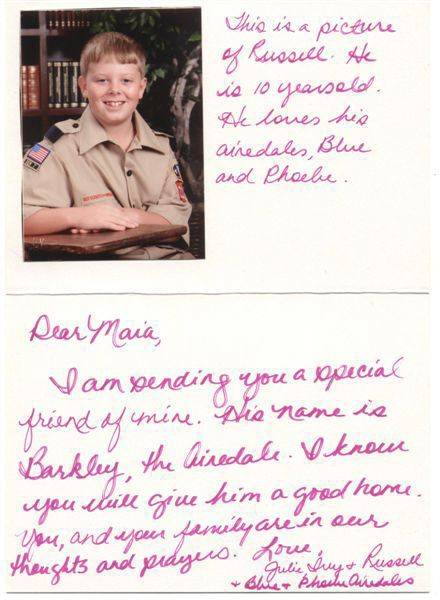 This is a picture
of Russell. He
is 10 years old.
He loves his
airedales, Blue
and Phoebe.
Dear Maia,
I am sending you a special
friend of mine. His name is
Barkley, the Airedale. I know
you will give him a good home.
You, and your family are in our
thoughts and prayers. Love,
Julie, Troy + Russell
+ Blue + Phoebe Airedales